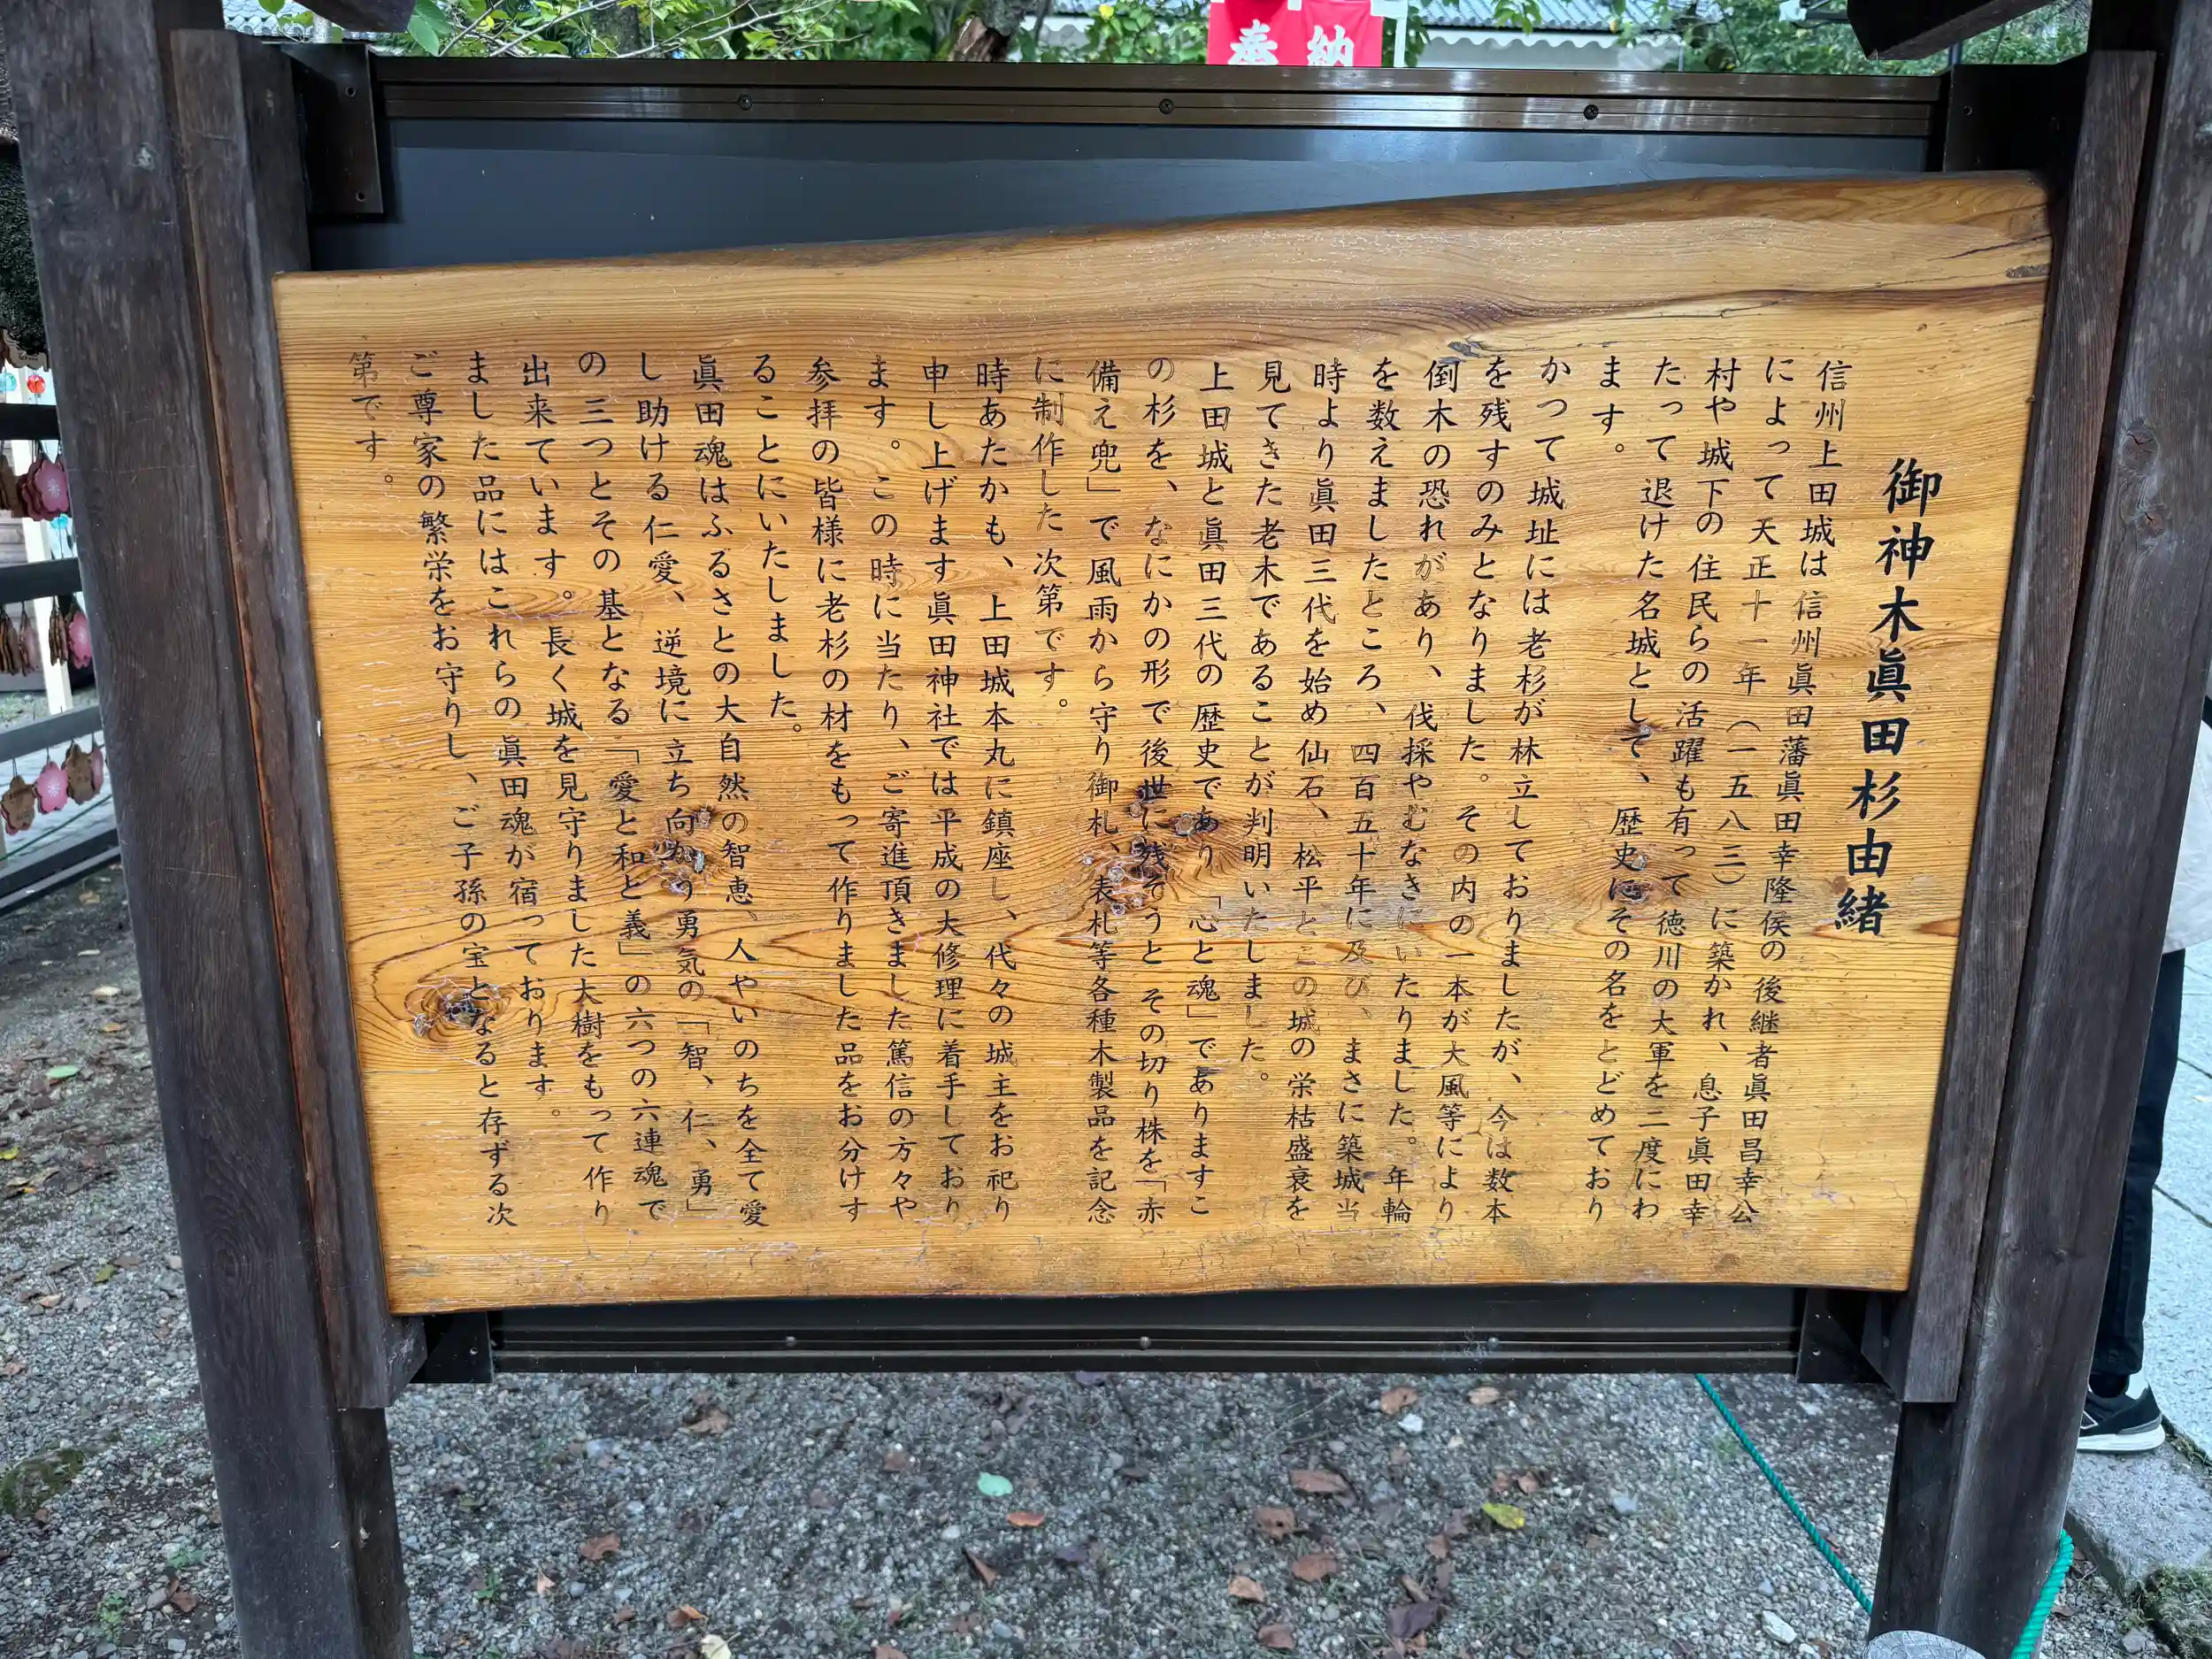 奉納
御神木眞田杉由緒
信州上田城は信州眞田藩眞田幸隆侯の後継者眞田昌幸公
によって天正十一年(一五八三)に築かれ、息子眞田幸
村や城下の住民らの活躍も有って徳川の大軍を二度にわ
たって退けた名城として、歴史にその名をとどめており
ます。
かつて城址には老杉が林立しておりましたが、今は数本
を残すのみとなりました。その内の一本が大風等により
倒木の恐れがあり、伐採やむなきにいたりました。年輪
を数えましたところ、四百五十年に及び、まさに築城当
時より眞田三代を始め仙石、松平とこの城の栄枯盛衰を
見てきた老木であることが判明いたしました。
上田城と眞田三代の歴史であり「心と魂」でありますこ
の杉を、なにかの形で後世に残そうとその切り株を「赤
備え兜」で風雨から守り御札、表札等各種木製品を記念
に制作した次第です。
時あたかも、上田城本丸に鎮座し、代々の城主をお祀り
申し上げます眞田神社では平成の大修理に着手しており
ます。この時に当たり、ご寄進頂きました篤信の方々や
参拝の皆様に老杉の材をもって作りました品をお分けす
ることにいたしました。
眞田魂はふるさとの大自然の智恵、人やいのちを全て愛
し助ける仁愛、逆境に立ち向かう勇気の「智、仁、勇」
の三つとその基となる「愛と和と義」の六つの六連魂で
出来ています。長く城を見守りました大樹をもって作り
ました品にはこれらの眞田魂が宿っております。
ご尊家の繁栄をお守りし、ご子孫の宝となると存ずる次
第です。